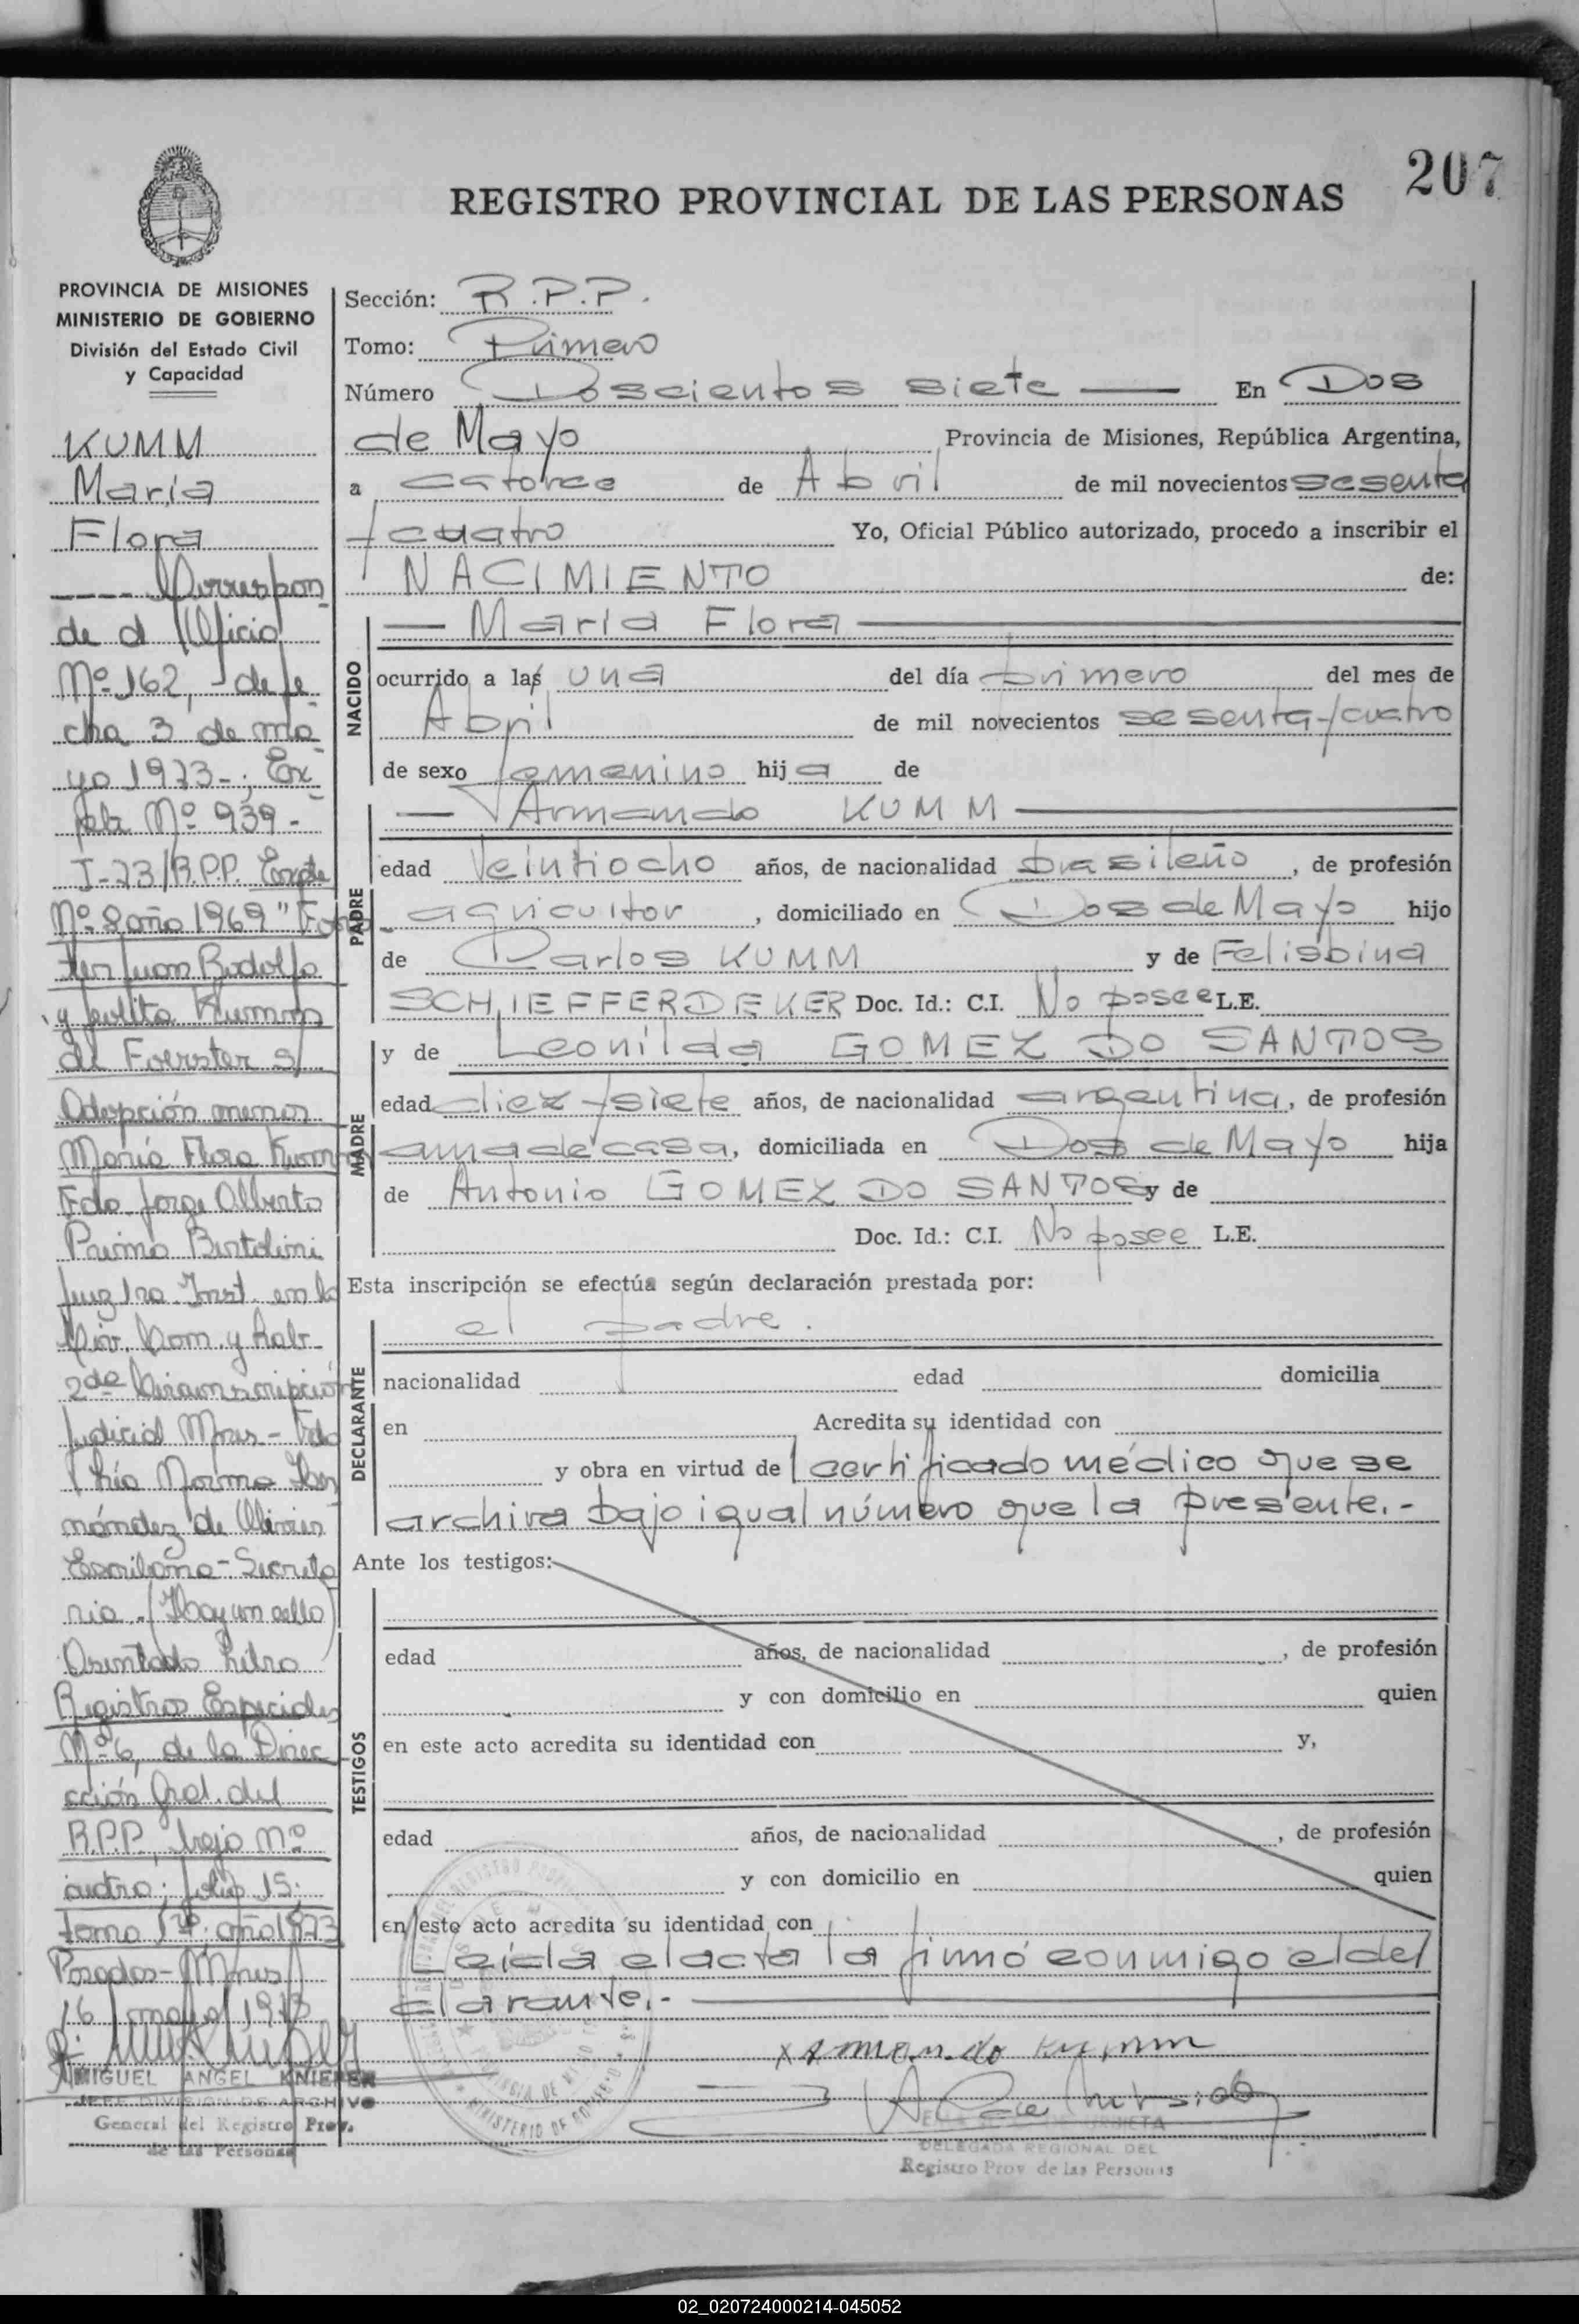 207
REGISTRO PROVINCIAL DE LAS PERSONAS
PROVINCIA DE MISIONES
MINISTERIO DE GOBIERNO
División del Estado Civil
y Capacidad
KUMM
María
Flora
---- Correspon
de al Oficio
Nº 162, de fe
cha 3 de ma
yo 1973-; Ex
pte Nº 939-
J-73/R.P.P. Expte
Nº 8 año 1969 "Foers
ter Juan Rodolfo
y Julita Kumm
de Foerster s/
Adopción menor
María Flora Kumm
Fdo. Jorge Alberto
Primo Bertolini
Juez 1ra Inst. en lo
Civ. Com. y Lab.
2da Circunscripción
Judicial Mnes- Fdo
Norma Her
nández de
Escribana-Secreta
ria. (Hay un sello)
Asentado Libro
Registros Especiales
Nº 6, de la Direc
cción Gral. del
R.P.P. bajo Nº
cuatro; folio 15;
tomo 1º; año 1973
Posadas-Mnes
16 mayo 1973
MIGUEL ANGEL KNIEPER
JEFE DIVISION DE ARCHIVO
General del Registro Prov.
de las Personas
Sección: R.P.P.
Tomo: Primero
Número Doscientos siete — En Dos
de Mayo Provincia de Misiones, República Argentina,
a catorce de Abril de mil novecientos sesenta
y cuatro Yo, Oficial Público autorizado, procedo a inscribir el
NACIMIENTO de:
NACIDO
— María Flora —
ocurrido a las una del día primero del mes de
Abril de mil novecientos sesenta y cuatro
de sexo femenino hija de
PADRE
— Armando KUMM —
edad Veintiocho años, de nacionalidad brasileño, de profesión
agricultor, domiciliado en Dos de Mayo hijo
de Carlos KUMM y de Felisbina
SCHIEFFERDEKER Doc. Id.: C.I. No posee L.E.
MADRE
y de Leonilda GOMEZ DO SANTOS
edad diez y siete años, de nacionalidad argentina, de profesión
ama de casa, domiciliada en Dos de Mayo hija
de Antonio GOMEZ DO SANTOS y de
Doc. Id.: C.I. No posee L.E.
Esta inscripción se efectúa según declaración prestada por:
DECLARANTE
el padre.
nacionalidad edad domicilia
en Acredita su identidad con
y obra en virtud de certificado médico que se
archiva bajo igual número que la presente.-
Ante los testigos:
TESTIGOS
edad años, de nacionalidad , de profesión
y con domicilio en quien
en este acto acredita su identidad con y,
edad años, de nacionalidad , de profesión
y con domicilio en quien
en este acto acredita su identidad con
Leída el acta la firmó conmigo el de
clarante.-
Armando Kumm
DELEGADA REGIONAL DEL
Registro Prov. de las Personas
02_020724000214-045052